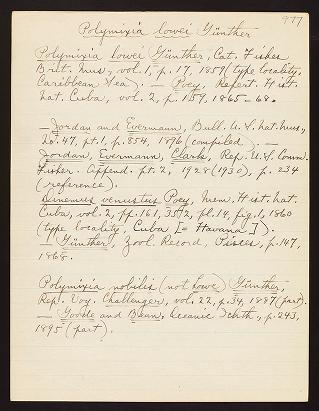 977
Polymixia lowei Günther
Polymixia lowei Günther, Cat. Fishes
Brit. Mus., vol. 1, p. 17, 1859 (type locality,
Caribbean Sea). — Poey, Repert. Hist.
Nat. Cuba, vol. 2, p. 159, 1865-68.
— Jordan and Evermann, Bull. U.S. Nat. Mus.,
No. 47, pt. 1, p. 854, 1896 (compiled). —
Jordan, Evermann, Clark, Rep. U.S. Comm.
Fisher. Append. pt. 2, 1928 (1930), p. 234
(reference).
Dinemus venustus Poey, Mem. Hist. Nat.
Cuba, vol. 2, pp. 161, 352, pl. 14, fig. 1, 1860
(type locality, Cuba [= Havana]).
— Günther, Zool. Record, Pisces, p. 147,
1868.
Polymixia nobilis (not Lowe) Günther,
Rep. Voy. Challenger, vol. 22, p. 34, 1887 (part).
— Goode and Bean, Oceanic Ichth., p. 243,
1895 (part).